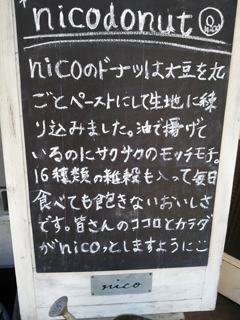 nicodonut
nicoのドーナツは大豆を丸
ごとペーストにして生地に練
り込みました。油で揚げて
いるのにサクサクのモッチモチ。
16種類の雑穀も入って毎日
食べても飽きないおいしさ
です。皆さんのココロとカラダ
がnicoっとしますようにこ
nico